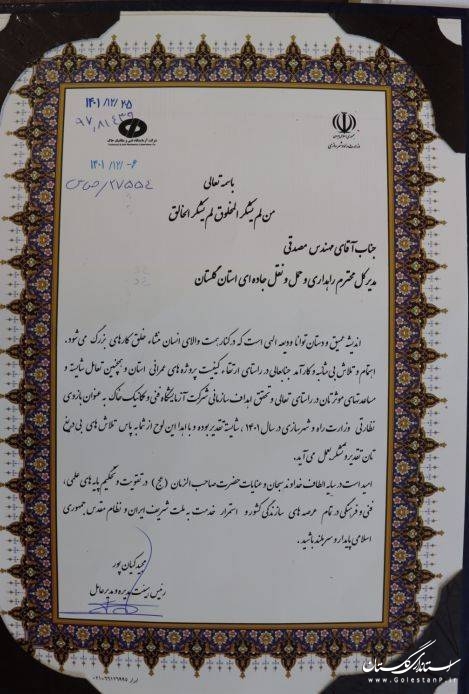 ۱۴۰۱/۱۲/۲۵
۹۷,۸۱۴۳۹
شرکت آزمایشگاه فنی و مکانیک خاک
۱۴۰۱/۱۲/۰۶
جمهوری اسلامی ایران
وزارت راه و شهرسازی
باسمه تعالی
من لم یشکر المخلوق لم یشکر الخالق
جناب آقای مهندس مصدقی
مدیر کل محترم راهداری و حمل و نقل جاده ای استان گلستان
اندیشه عمیق و دستان توانا ودیعه الهی است که در کنار همت والای انسان منشاء خلق کارهای بزرگ می شود.
اهتمام و تلاش بی شائبه و کارآمد جنابعالی در راستای ارتقاء کیفیت پروژه های عمرانی استان و همچنین تعامل شایسته و
مساعدتهای موثرتان در راستای تعالی و تحقق اهداف سازمانی شرکت آزمایشگاه فنی و مکانیک خاک به عنوان بازوی
نظارتی وزارت راه و شهرسازی در سال ۱۴۰۱، شایسته تقدیر بوده و با اهدا این لوح از شما به پاس تلاش های بی دریغ
تان تقدیر و تشکر بعمل می آید.
امید است در سایه الطاف خداوند سبحان و عنایات حضرت صاحب الزمان (عج) در تقویت و تحکیم پایه های علمی،
فنی و فرهنگی در تمام عرصه های سازندگی کشور و استمرار خدمت به ملت شریف ایران و نظام مقدس جمهوری
اسلامی پایدار و سربلند باشید.
مجید کیان پور
رئیس هیئت مدیره و مدیر عامل
استانداری گلستان
www.GolestanP.ir